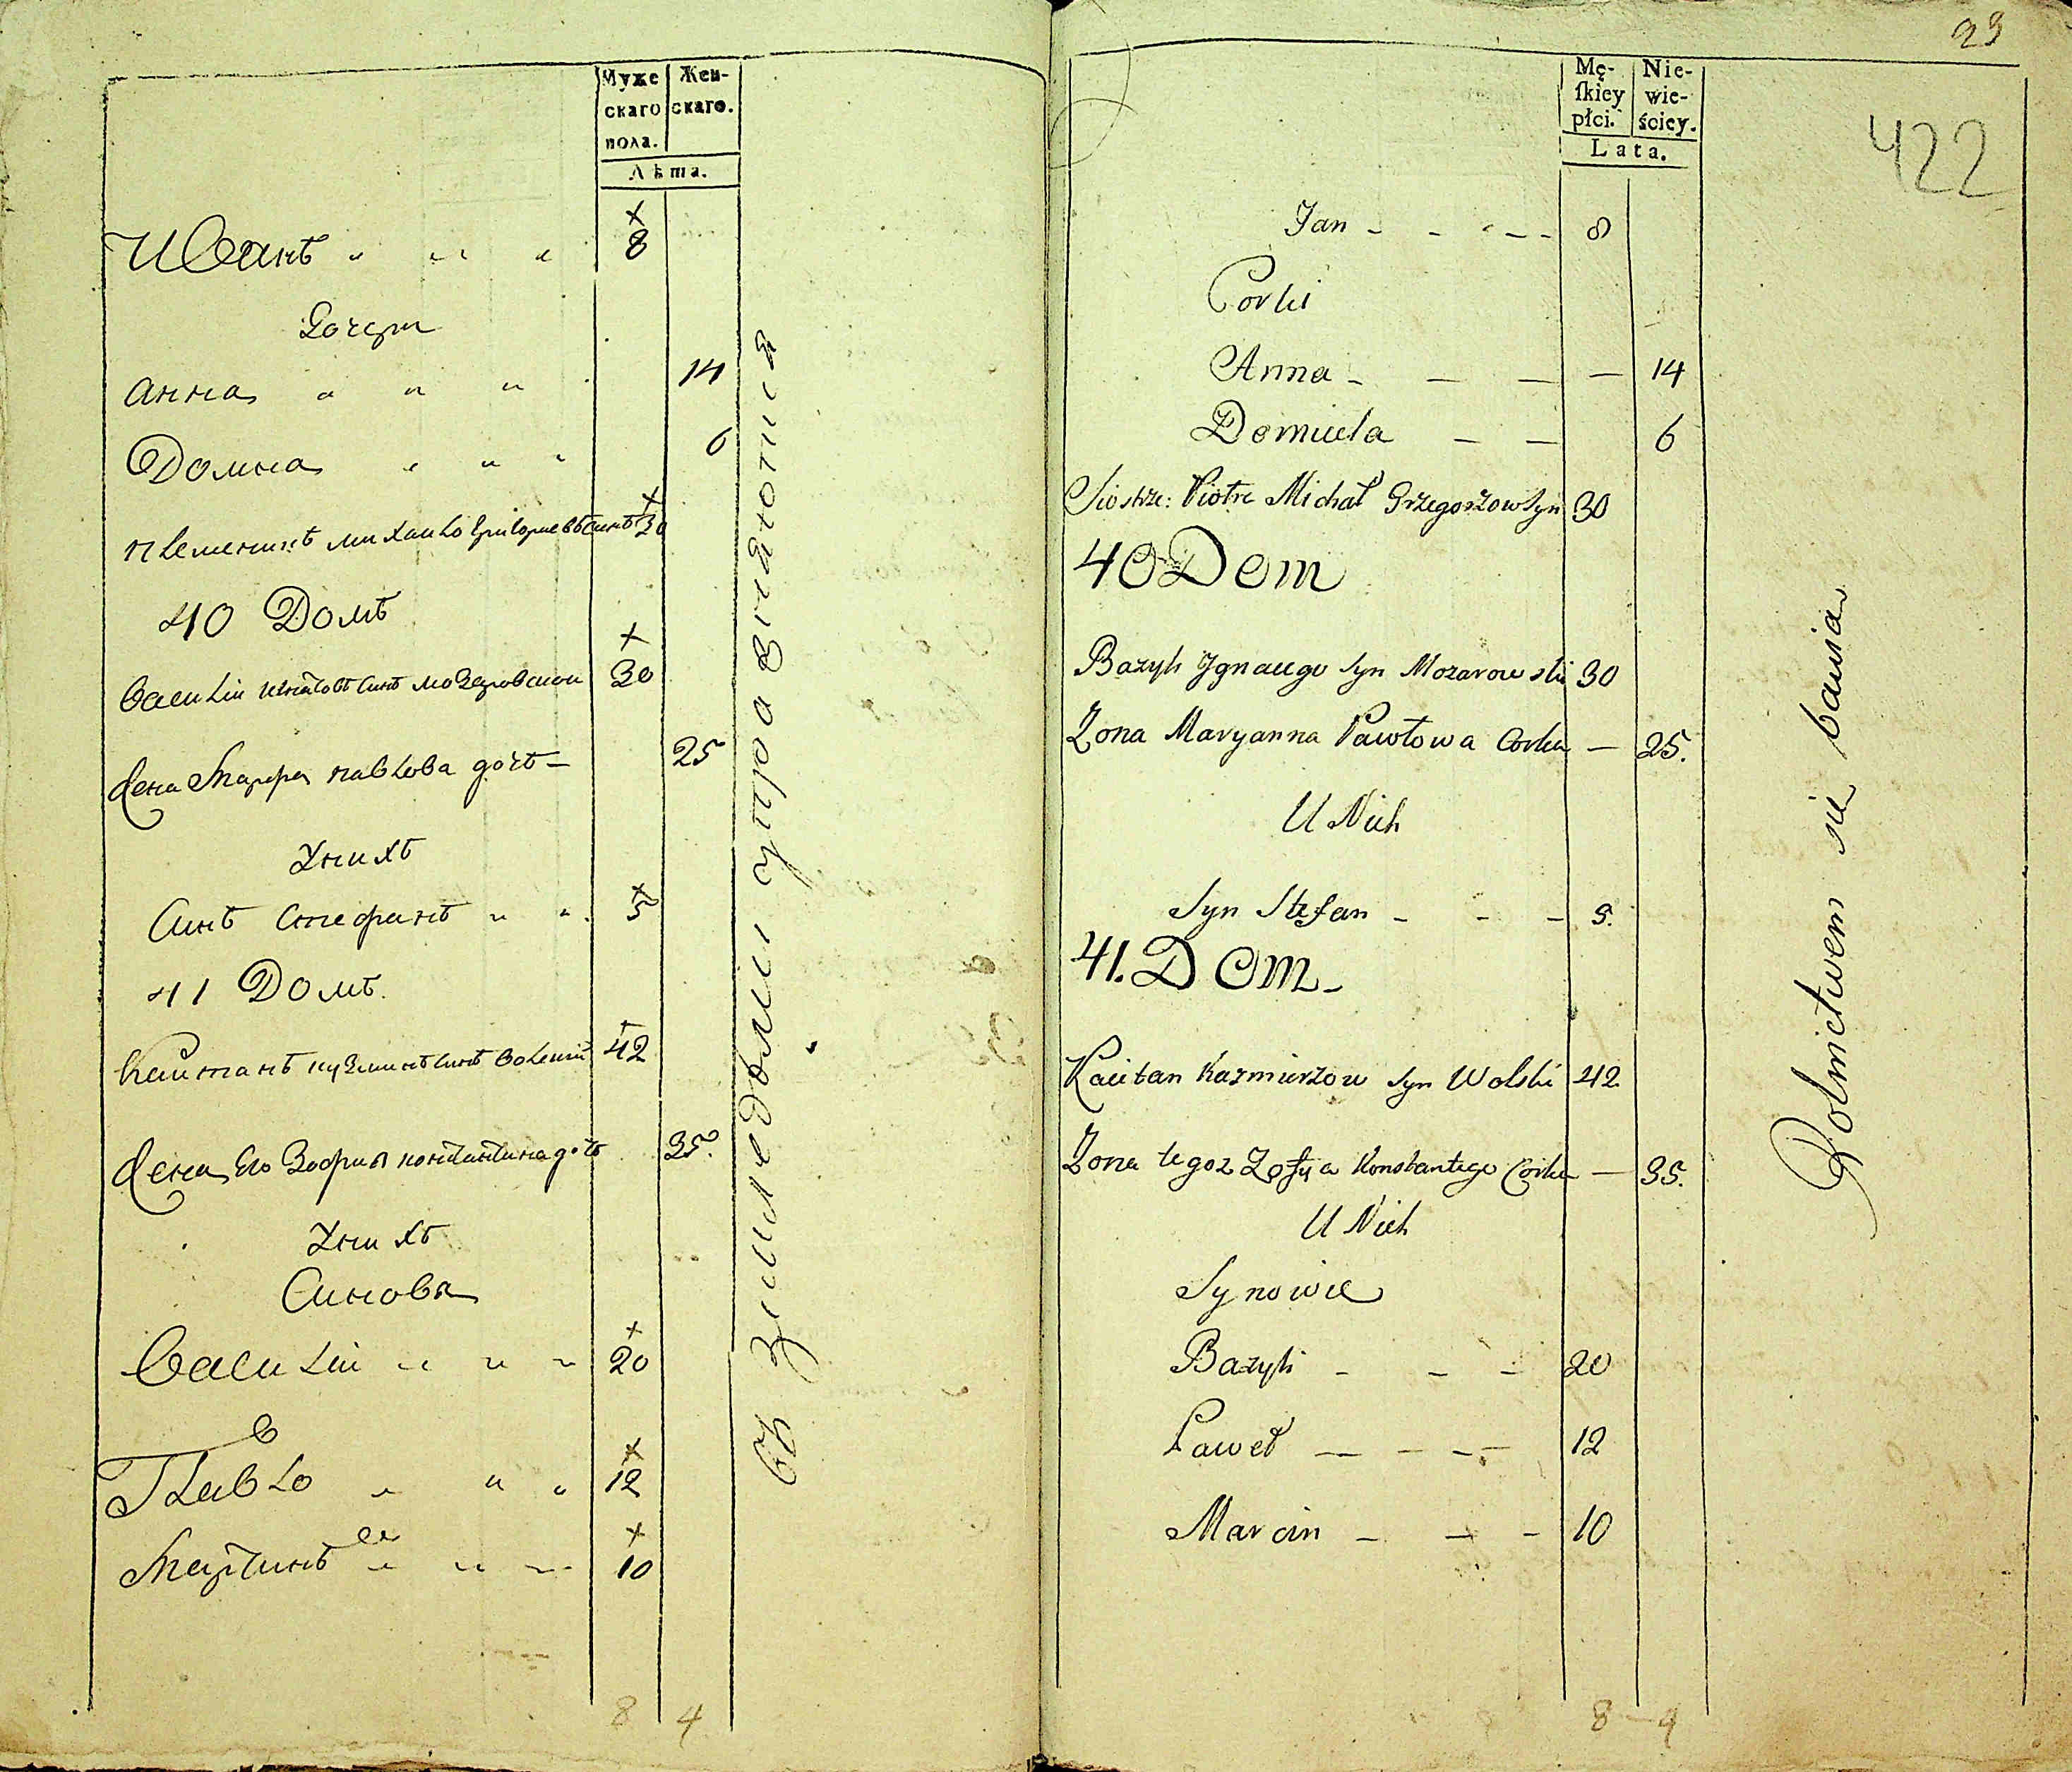 Муже
скаго
пола.
Жен-
скаго.
Лѣта.
Иванъ 8
Дочери
Анна 14
Домна 6
племеникъ михайло Григориевъ синъ 30
40 Домъ
Василий игнатовъ синъ мозаровский 30
Жена Марфа павлова дочъ 25
У них
Синъ Стефанъ 5
41 Домъ.
Каитанъ кузминъ синъ волский 42
Жена Его Зофия константина дочъ 35.
У них
Синова
Василий 20
Павло 12
Мартинъ 10
8 4
въ земледѣлии супражняются
23
Mę-
ſkiey
płci.
Nie-
wie-
ściey.
Lata.
422
Jan 8
Corki
Anna 14
Domicela 6
Siostrze: Piotr Michał Grzegorzow Syn 30
40 Dom
Bazyli Ignacego Syn Mozarowski 30
Zona Maryanna Pawłowa Corka 25.
U Nich
Syn Stefan 5.
41. Dom
Kaietan Kazmierzow Syn Wolski 42
Zona tegoz Zofya Konstantego Corka 35.
U Nich
Synowie
Bazyli 20
Paweł 12
Marcin 10
8 4
Rolnictwem się bawią